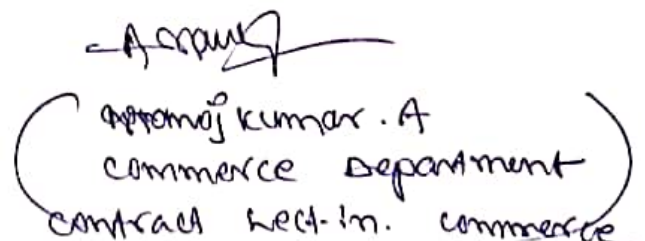 kumar. A
commerce Department
contract Lect-in. commerce